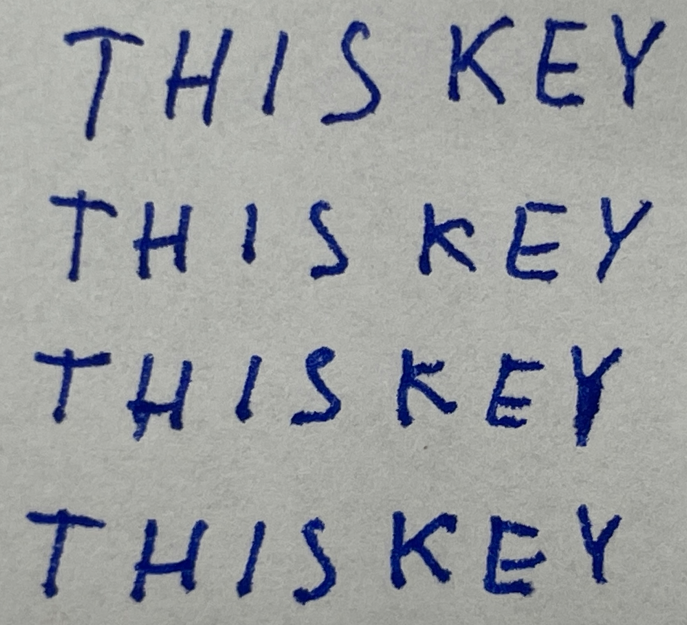 THIS KEY
THIS KEY
THIS KEY
THIS KEY